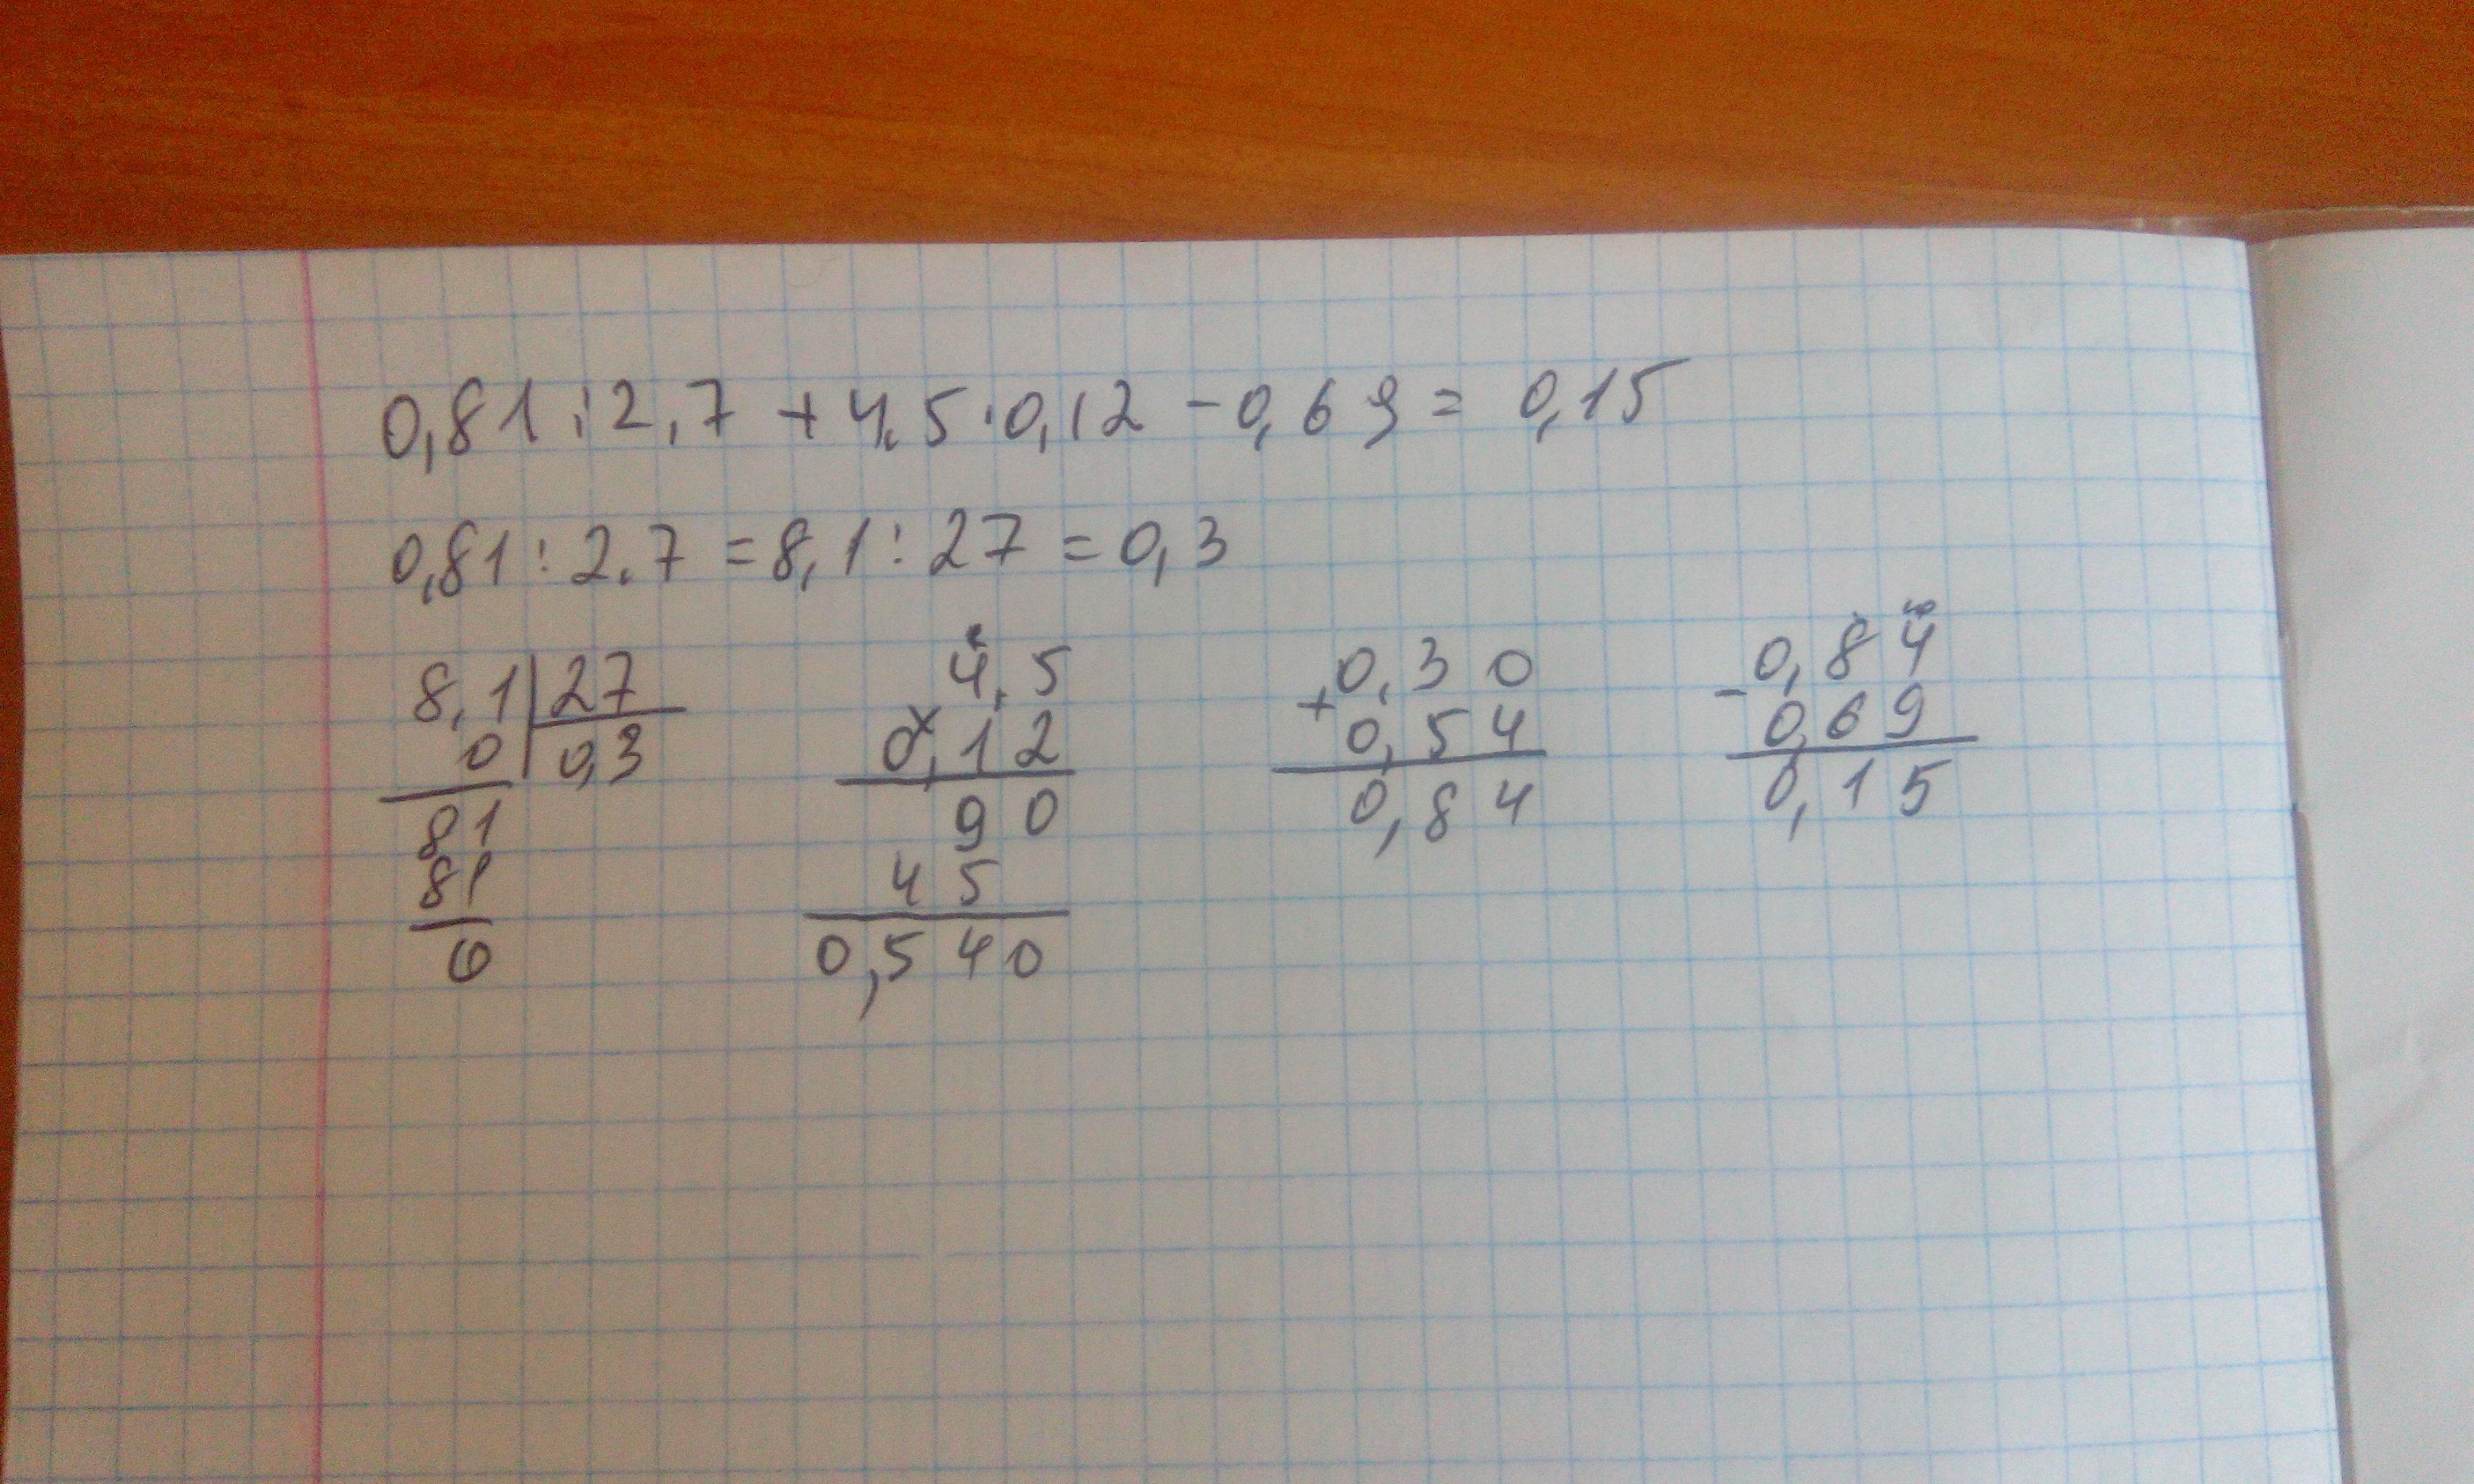 0,81:2,7+4,5·0,12-0,69=0,15
0,81:2,7=8,1:27=0,3
8,1|27
0|0,3
81
81
0
2
4,5
×
0,12
90
45
0,540
+0,30
0,54
0,84
10
-0,84
0,69
0,15